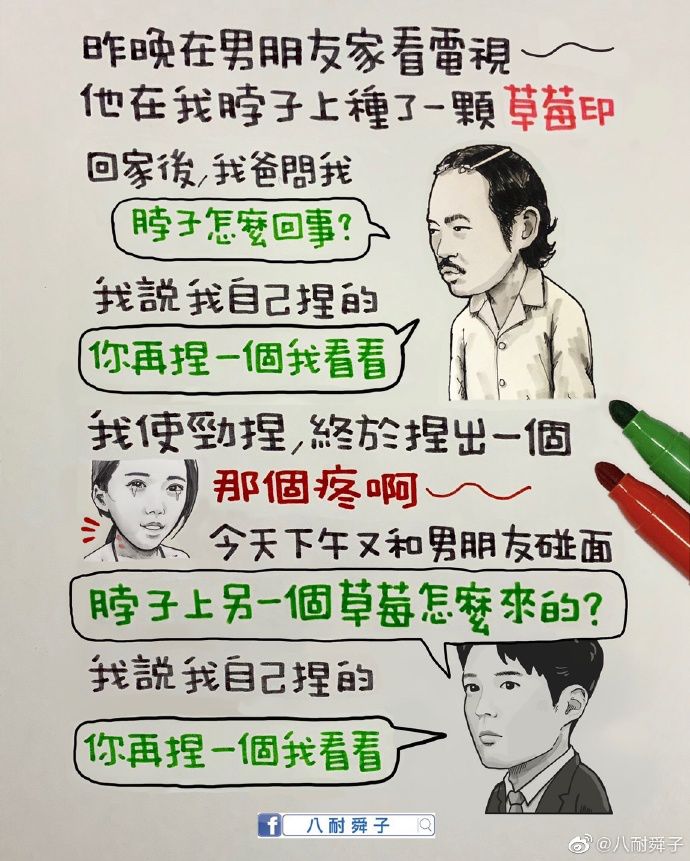 昨晚在男朋友家看電視
他在我脖子上種了一顆草莓印
回家後,我爸問我
脖子怎麼回事?
我說我自己捏的
你再捏一個我看看
我使勁捏,終於捏出一個
那個疼啊
今天下午又和男朋友碰面
脖子上另一個草莓怎麼來的?
我說我自己捏的
你再捏一個我看看
f 八耐舜子
@八耐舜子